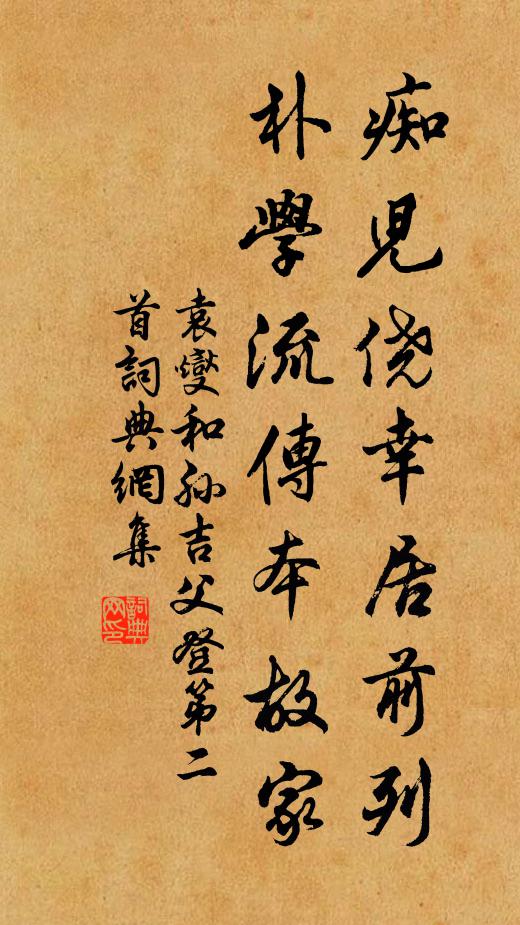 痴児僥幸居前列
朴學流傳本故家
袁燮和孙吉父登第二
首詞典網集
詞典
网印